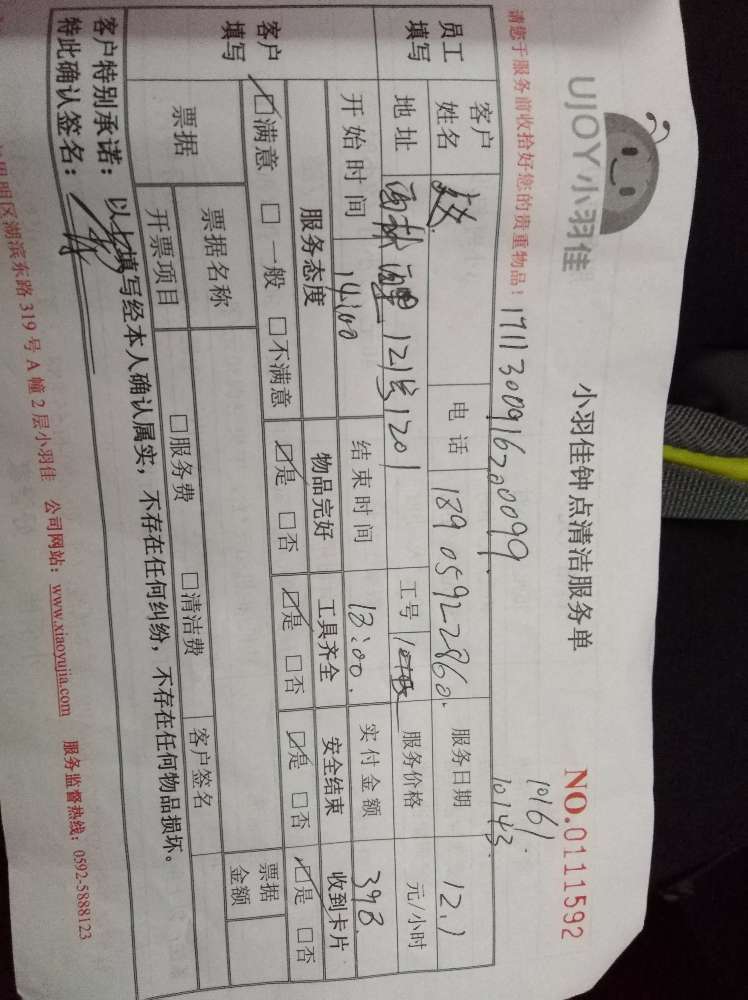 UJOY小羽佳
小羽佳钟点清洁服务单
NO.0111592
请您于服务前收拾好您的贵重物品！
171130091620099
10161
10143.
员工填写
客户姓名
电话 18905922860.
服务日期 12.1
地址 121号1201
工号
服务价格 元/小时
开始时间 14:00
结束时间 18:00.
实付金额 398.
客户填写
服务态度 物品完好 工具齐全 安全结束 收到卡片
☑满意 □一般 □不满意 ☑是 □否 ☑是 □否 ☑是 □否 ☑是 □否
票据
票据名称
票据金额
开票项目 □服务费 □清洁费 客户签名
客户特别承诺：以上填写经本人确认属实，不存在任何纠纷，不存在任何物品损坏。
特此确认签名：
明区湖滨东路 319 号 A 幢 2 层小羽佳 公司网站：www.xiaoyujia.com 服务监督热线：0592-5888123